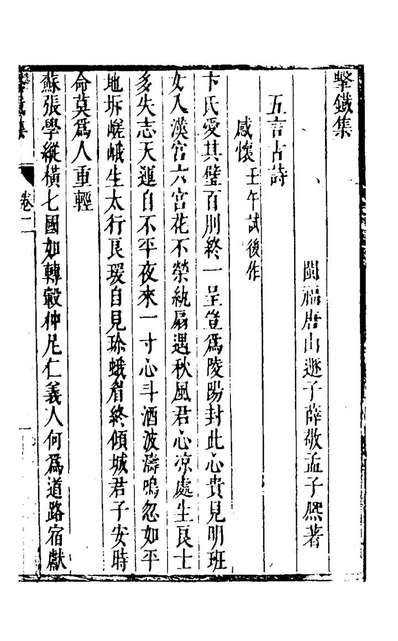 擊鐵集
閩福唐山遯子薛敬孟子熙著
五言古詩
感懷壬午試後作
卞氏愛其璧百刖終一呈豈爲陵陽封此心貴見明班
女入漢宮六宮花不榮紈扇遇秋風君心凉處生良士
多失志天運自不平夜來一寸心斗酒波濤鳴忽如平
地坼嵯峨生太行良瑗自見珍蛾眉終傾城君子安時
命莫爲人重輕
蘇張學縱橫七國如轉轂仲尼仁義人何爲道路宿獻
卷二
一